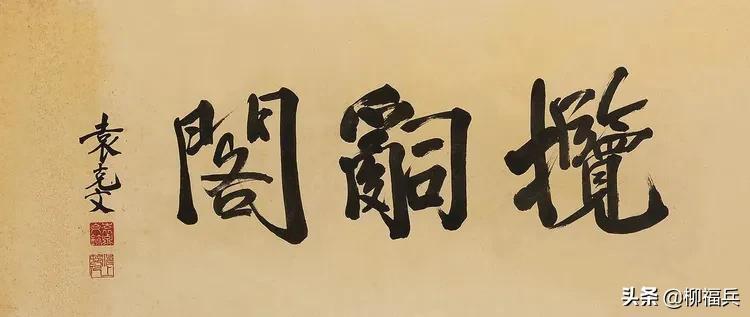 攬辭閣
袁克文
头条 @柳福兵